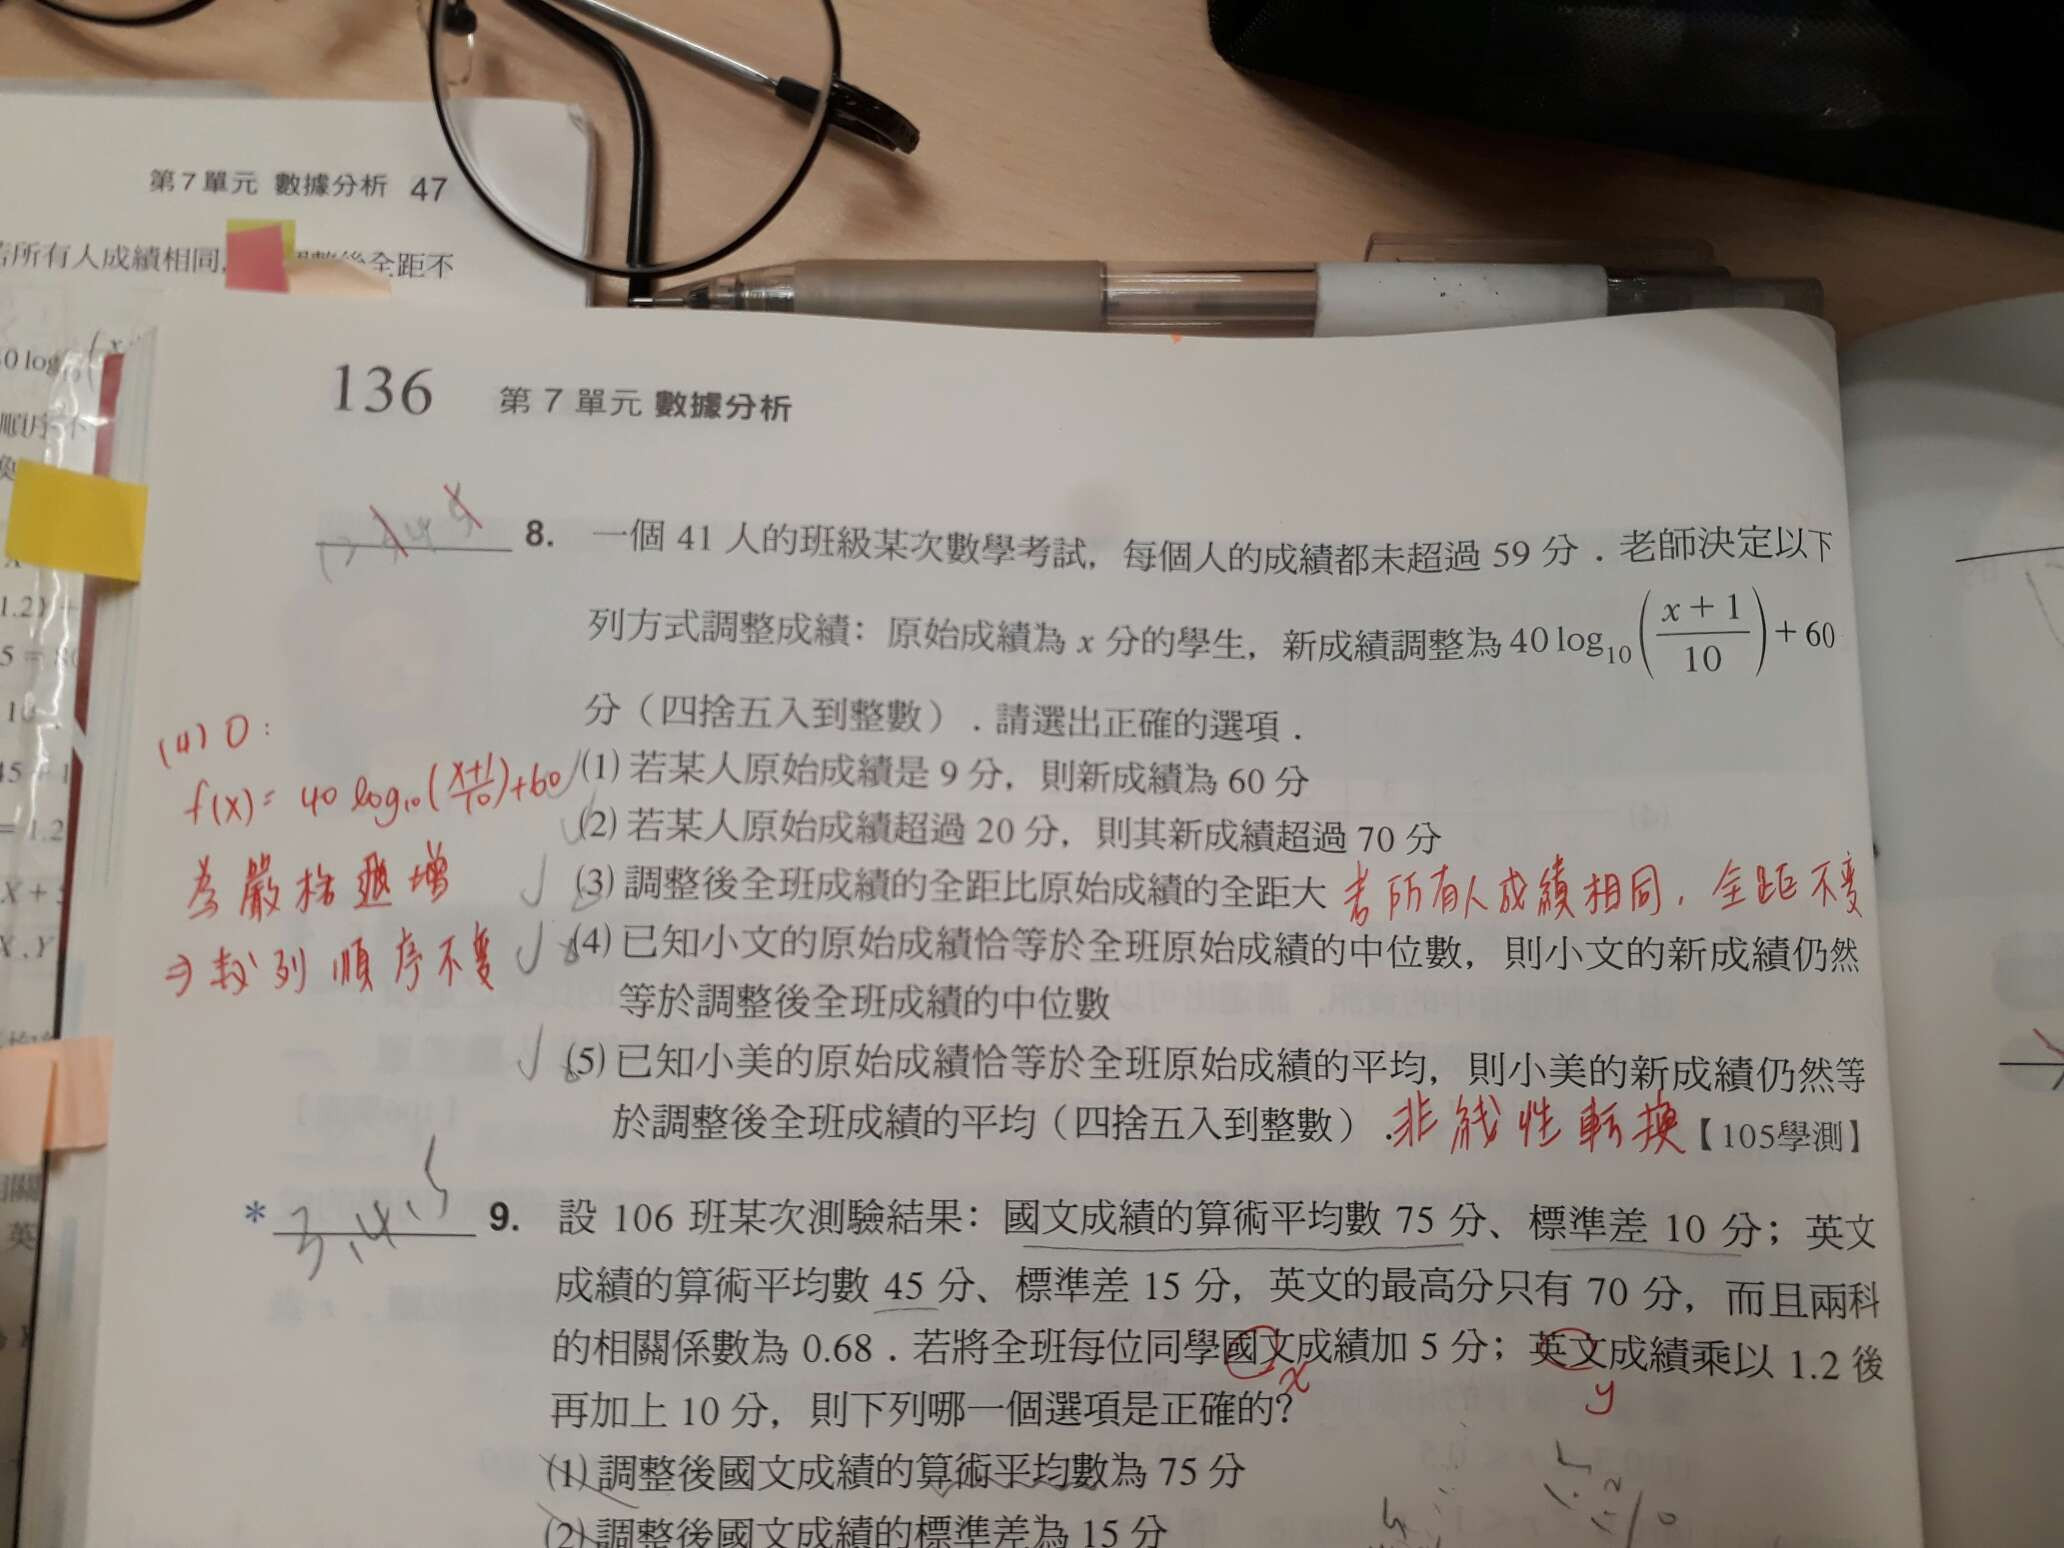 第7單元 數據分析 47
若所有人成績相同,
全距不
136 第 7 單元 數據分析
8. 一個 41 人的班級某次數學考試,每個人的成績都未超過 59 分.老師決定以下
列方式調整成績:原始成績為 x 分的學生,新成績調整為 40 log₁₀((x+1)/10)+60
分(四捨五入到整數).請選出正確的選項.
(1) 若某人原始成績是 9 分,則新成績為 60 分
(2) 若某人原始成績超過 20 分,則其新成績超過 70 分
(3) 調整後全班成績的全距比原始成績的全距大 若所有人成績相同, 全距不變
(4) 已知小文的原始成績恰等於全班原始成績的中位數,則小文的新成績仍然
等於調整後全班成績的中位數
(5) 已知小美的原始成績恰等於全班原始成績的平均,則小美的新成績仍然等
於調整後全班成績的平均(四捨五入到整數).非線性轉換【105學測】
(4) O:
f(x) = 40 log₁₀((x+1)/10)+60
為嚴格遞增
⇒ 排列順序不變
* 3,4,5 9. 設 106 班某次測驗結果:國文成績的算術平均數 75 分、標準差 10 分;英文
成績的算術平均數 45 分、標準差 15 分,英文的最高分只有 70 分,而且兩科
的相關係數為 0.68.若將全班每位同學國文成績加 5 分;英文成績乘以 1.2 後
x y
再加上 10 分,則下列哪一個選項是正確的?
(1) 調整後國文成績的算術平均數為 75 分
(2) 調整後國文成績的標準差為 15 分